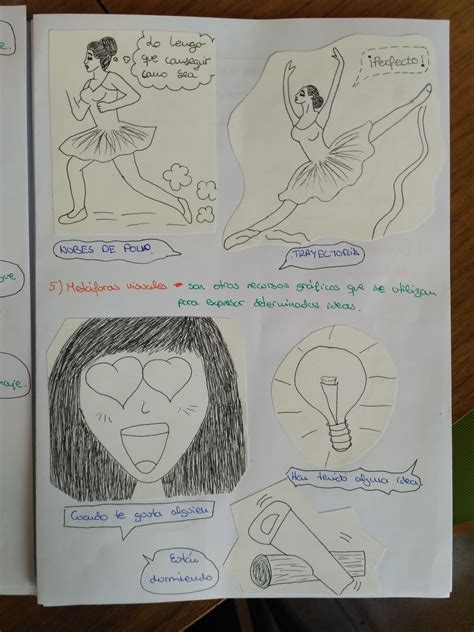 Lo tengo
que conseguir
como sea
¡Perfecto!
NUBES DE POLVO
TRAYECTORIA
5) Metáforas visuales • son otros recursos gráficos que se utilizan
para expresar determinadas ideas.
Cuando te gusta alguien
Han tenido alguna idea
Están
durmiendo